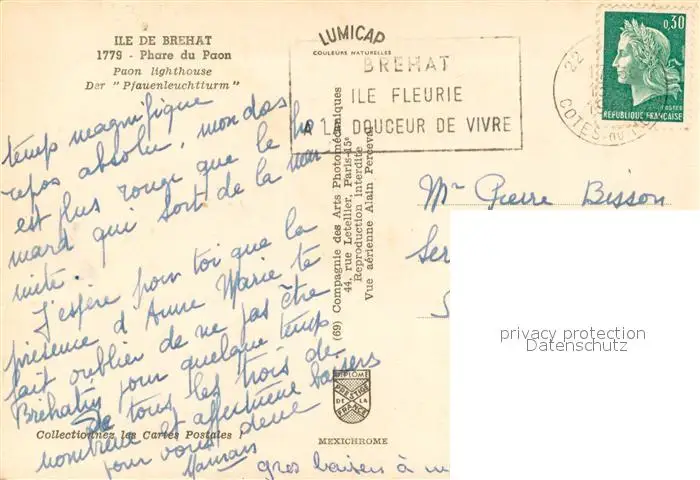 ILE DE BREHAT
1779 - Phare du Paon
Paon lighthouse
Der "Pfauenleuchtturm"
LUMICAP
COULEURS NATURELLES
BREHAT
ILE FLEURIE
A LA DOUCEUR DE VIVRE
22
COTES-DU-
0,30
POSTES
REPUBLIQUE FRANÇAISE
temps magnifique
repos absolu, mon dos
est plus rouge que le ho
mard qui sort de la mar
mite.
J'espère pour toi que la
présence d'Anne Marie te
fait oublier de ne pas être
Bréhatin pour quelque temps
De tous les trois de
nombreux et affectueux baisers
pour vous deux
gros baisers à
(69) Compagnie des Arts Photomécaniques
44, rue Letellier, Paris-15e
Reproduction interdite
Vue aérienne Alain Perceval
Mr Pierre Bisson
Ser
privacy protection
Datenschutz
DIPLOME
PRESTIGE
DE LA
FRANCE
Collectionnez les Cartes Postales !
MEXICHROME